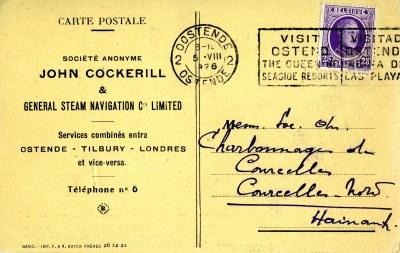 CARTE POSTALE
SOCIÉTÉ ANONYME
JOHN COCKERILL
&
GENERAL STEAM NAVIGATION Co LIMITED
Services combinés entre
OSTENDE - TILBURY - LONDRES
et vice-versa.
Téléphone no 6
GAND. - IMP. F. & R. BUYCK FRÈRES 26 12-21
OOSTENDE
2 2
5 -VIII
1926
OSTENDE
BELGIQUE
VISIT VISITAD
OSTEND OSTENDE
THE QUEEN
SEASIDE RESORTS LAS PLAYA
Messrs Soc. An.
Charbonnages de
Courcelles
Courcelles-Nord
Hainaut